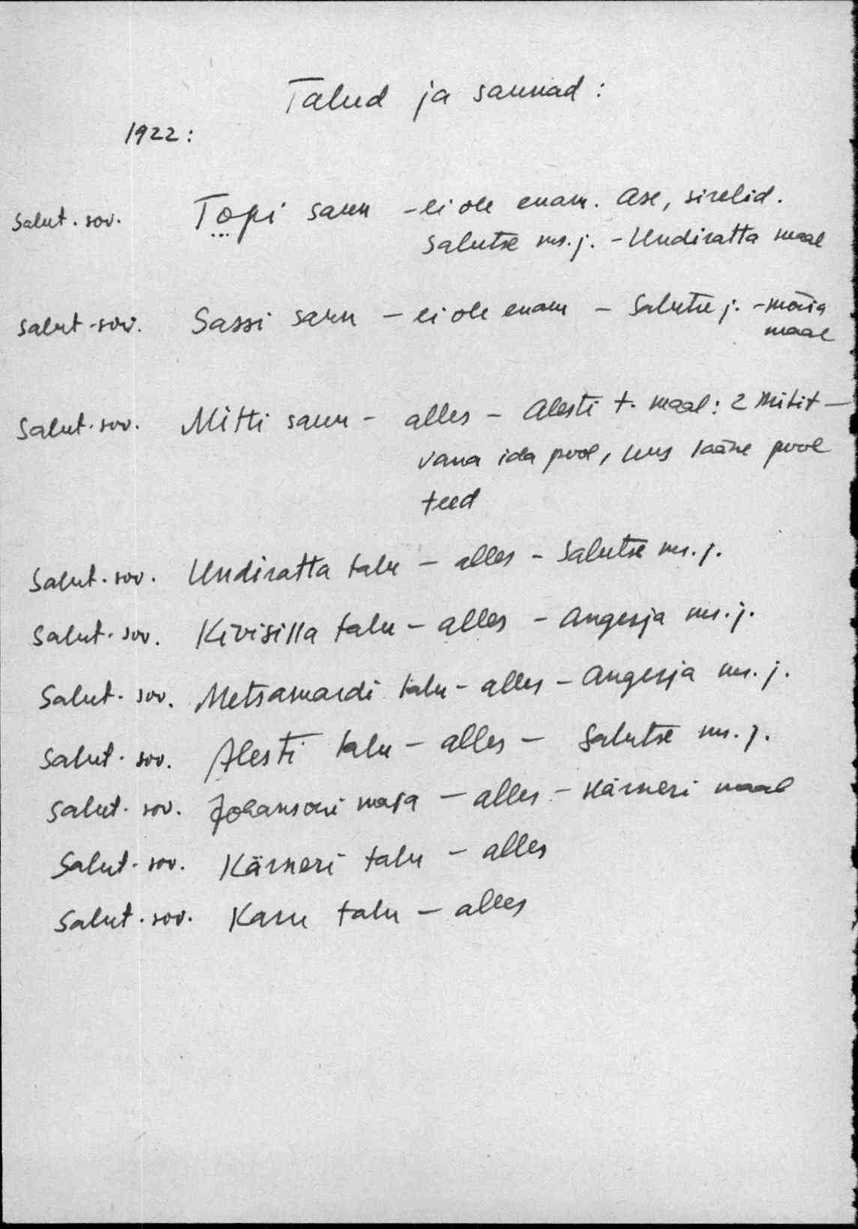 Talud ja saunad:
1922:
Salut. sov. Topi saun - ei ole enam. Ase, sirelid.
Salutse ms. j. - Undiratta maal
Salut. sov. Sassi saun - ei ole enam - Salutse j. - mõisa
maal
Salut. sov. Mitti saun - alles - Alesti t. maal: 2 Mitit -
vana ida pool, uus lääne pool
teed
Salut. sov. Undiratta talu - alles - Salutse ms. j.
Salut. sov. Kivisilla talu - alles - Angerja ms. j.
Salut. sov. Metsamardi talu - alles - Angerja ms. j.
Salut. sov. Alesti talu - alles - Salutse ms. j.
Salut. sov. Johansoni maja - alles - Kärneri maal
Salut. sov. Kärneri talu - alles
Salut. sov. Kasu talu - alles